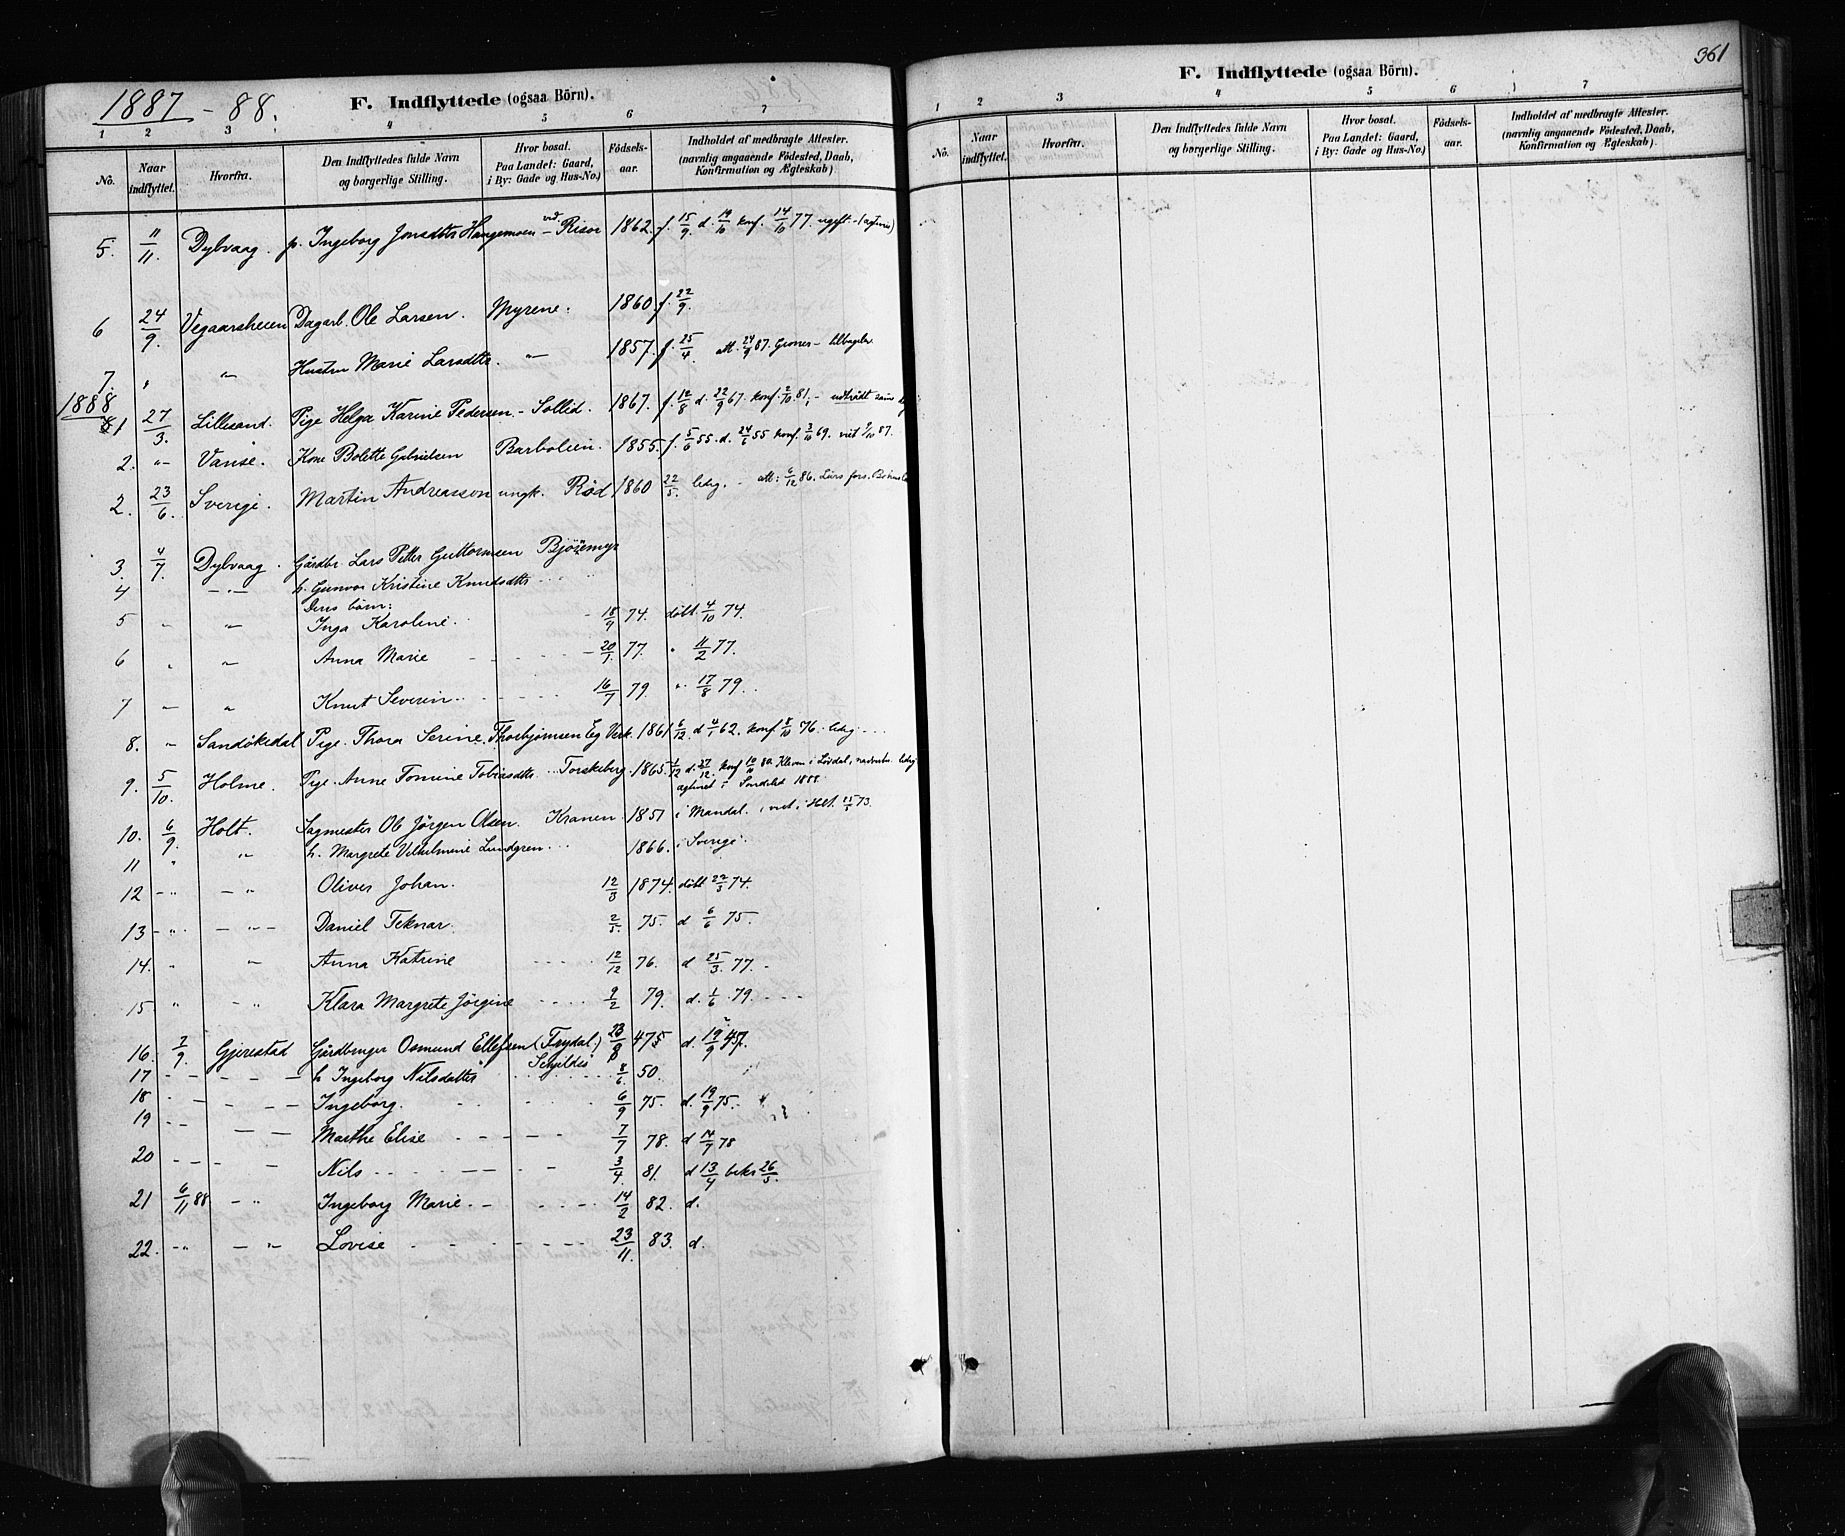 1887 - 88.
F. Indflyttede (ogsaa Börn).
1 2 3 4 5 6 7
No. Naar indflyttet. Hvorfra. Den Indflyttedes fulde Navn og borgerlige Stilling. Hvor bosat. Paa Landet: Gaard, i By: Gade og Hus-No.) Födsels-aar. Indholdet af medbragte Attester. (navnlig angaaende Födested, Daab, Konfirmation og Ægteskab)
5. 11/11 Dybvaag. p. Ingeborg Jonsdttr Hangemoen - ved Risør 1862. f. 15/9. d. 19/10 konf. 14/10 77. ugift -
6 24/9. Vegaarsheien Dagarb. Ole Larsen. Myrene. 1860. f. 22/9.
7. " " Hustru Marie Larsdttr. " 1857. f. 25/4. Att. 24/9 87.
1888
1 27/3. Lillesand. Pige Helga Karine Pedersen - Sollid. 1867. f. 12/8 d. 22/9 67. konf. 2/10 81, - udtrådt
2. " Vanse. Kone Bolette Gabrielsen Barbolien. 1855. f. 5/6 55. d. 24/6 55 konf. 3/10 69. viet 9/10 87.
2. 23/6. Sverige. Martin Andreasson ungk. Rød 1860 22/5. ledig. - Att: 6/12 86.
3. 4/7. Dybvaag. Gårdbr Lars Petter Guttormsen Bjørnemyr
4 - " - h. Gunvor Kristine Knudsdttr
Deres børn:
5 " " Inga Karoline. 18/9 74. døbt. 4/10 74.
6 " " Anna Marie 20/1 77. " 11/2 77.
7 " " Knut Severin 16/7 79. " 17/8 79.
8. " Sandøkedal Pige. Thora Serine Thorbjørnsen Eg. Verk. 1861 6/12 d 4/1 62. konf. 8/10 76. ledig
9. 5/10. Holme. Pige. Anne Tomine Tobiasdttr Torskeberg. 1865. 1/12 d. 27/12. konf 10/10 80
i Søndeled 1888.
10. 6/9. Holt. Sagmester Ole Jörgen Olsen. Kranen. 1851 i Mandal. viet i Holt. 73.
11 " " h. Margrete Vilhelmine Lundgren 1866. i Sverige.
12 " " Oliver Johan. 12/3 1874. döbt 22/3 74.
13 " " Daniel Teknar. 2/5. 75. d 6/6 75.
14. " " Anna Katrine 12/12 76. d 25/3. 77.
15 " " Klara Margrete Jørgine 9/2 79. d. 1/6. 79.
16. 7/9. Gjerestad Gårdbruger Osmund Ellefsen (Frydal.) 23/8 47 d. 19/9 47.
17 h Ingeborg Nilsdatter 8/6 50.
18 Ingeborg. 6/9 75. d. 19/9 75.
19 Marthe Elise 7/7 78. d 14/7 78
20 Nils 3/4. 81. d 13/4 bekr 26/5.
21 6/11 88 " Ingeborg Marie. 14/2 82. d.
22. " " Lovise 23/11. 83. d.
361
F. Indflyttede (ogsaa Börn).
1 2 3 4 5 6 7
No. Naar indflyttet. Hvorfra. Den Indflyttedes fulde Navn og borgerlige Stilling. Hvor bosat. Paa Landet: Gaard, i By: Gade og Hus-No.) Födsels-aar. Indholdet af medbragte Attester. (navnlig angaaende Födested, Daab, Konfirmation og Ægteskab).